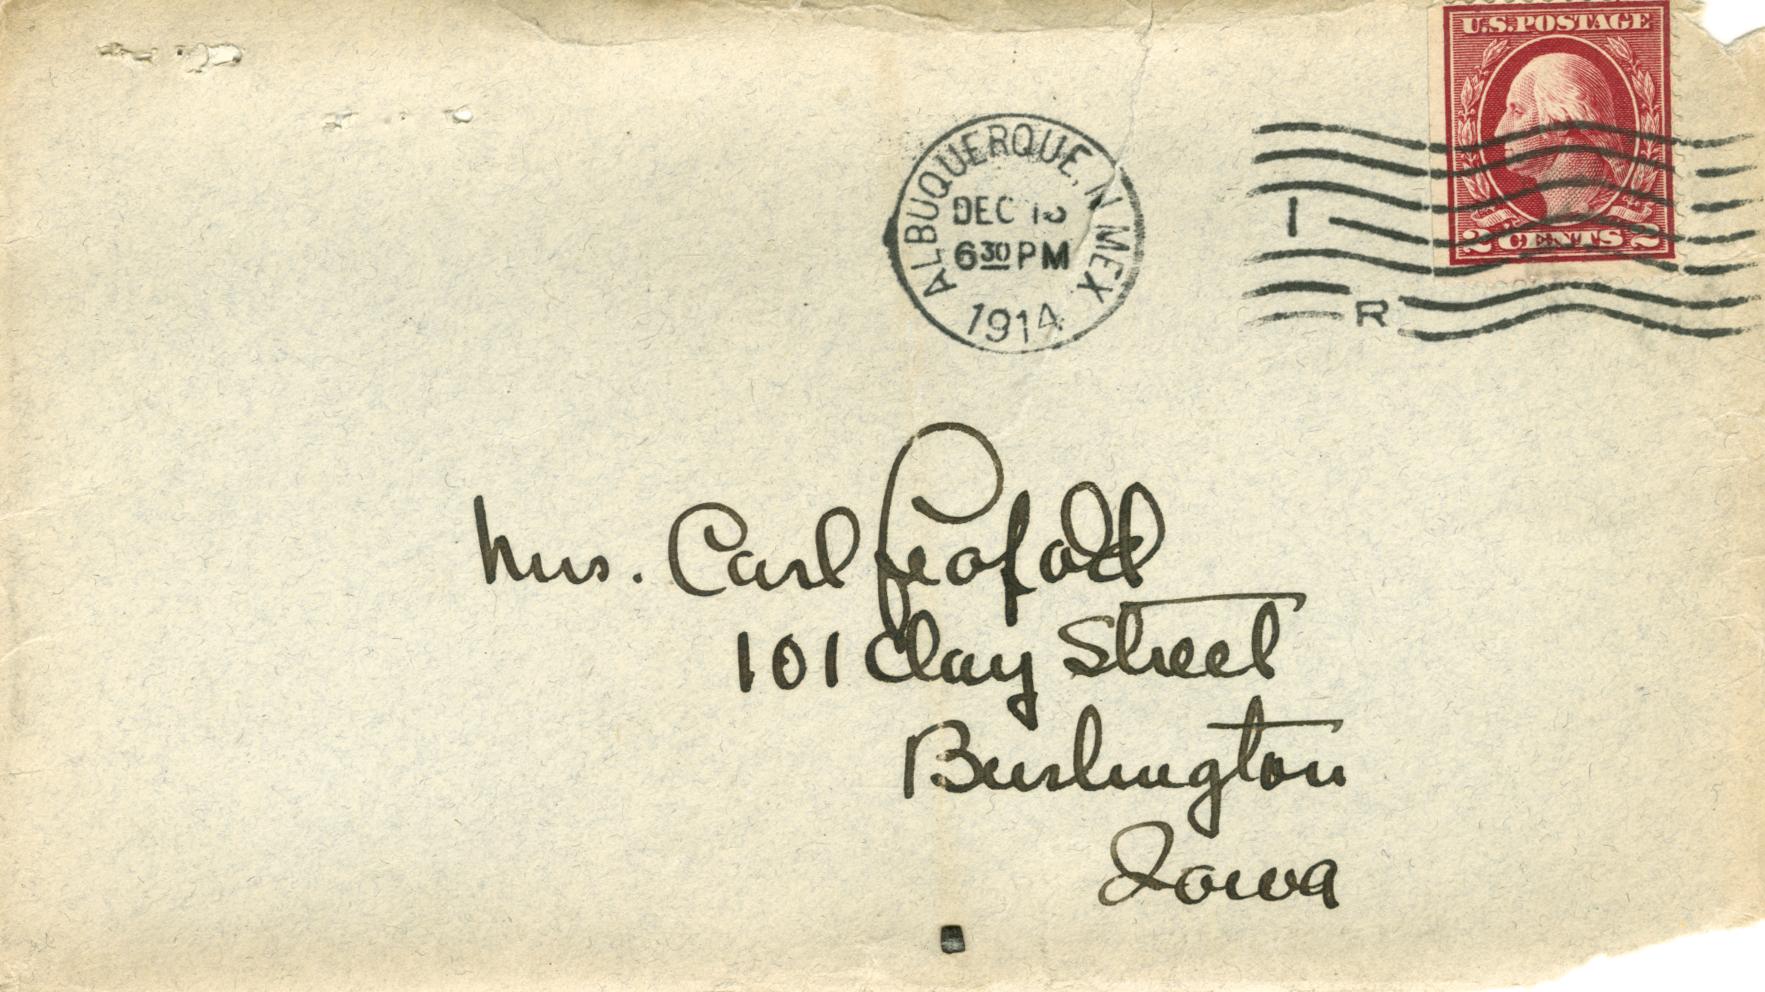 U.S. POSTAGE
2 CENTS 2
ALBUQUERQUE, N MEX
DEC
6 30 PM
1914
1
R
Mrs. Carl Leopold
101 Clay Street
Burlington
Iowa